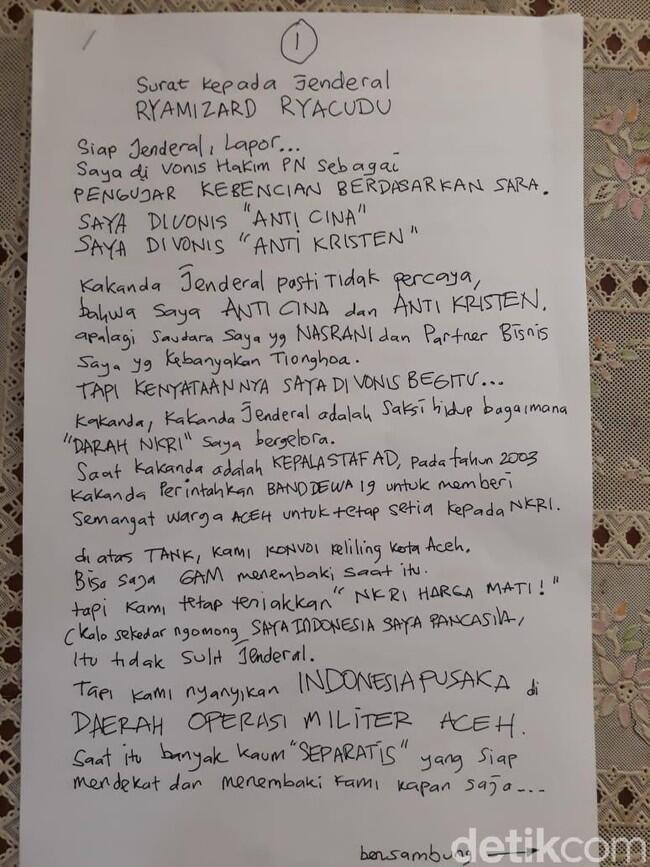 1
Surat kepada Jenderal
RYAMIZARD RYACUDU
Siap Jenderal, Lapor...
Saya di vonis Hakim PN sebagai
PENGUJAR KEBENCIAN BERDASARKAN SARA.
SAYA DIVONIS "ANTI CINA"
SAYA DIVONIS "ANTI KRISTEN"
Kakanda Jenderal pasti tidak percaya,
bahwa saya ANTI CINA dan ANTI KRISTEN.
apalagi saudara saya yg NASRANI dan Partner Bisnis
saya yg kebanyakan Tionghoa.
TAPI KENYATAANNYA SAYA DIVONIS BEGITU...
Kakanda, Kakanda Jenderal adalah saksi hidup bagaimana
"DARAH NKRI" saya bergelora.
Saat kakanda adalah KEPALA STAF AD, pada tahun 2003
Kakanda perintahkan BAND DEWA 19 untuk memberi
semangat warga ACEH untuk tetap setia kepada NKRI.
di atas TANK, kami KONVOI keliling kota Aceh.
Bisa saja GAM menembaki saat itu.
tapi kami tetap teriakkan "NKRI HARGA MATI!"
(kalo sekedar ngomong SAYA INDONESIA SAYA PANCASILA,
itu tidak sulit Jenderal.
Tapi kami nyanyikan INDONESIA PUSAKA di
DAERAH OPERASI MILITER ACEH.
Saat itu banyak kaum "SEPARATIS" yang siap
mendekat dan menembaki kami kapan saja...
bersambung →
detikcom